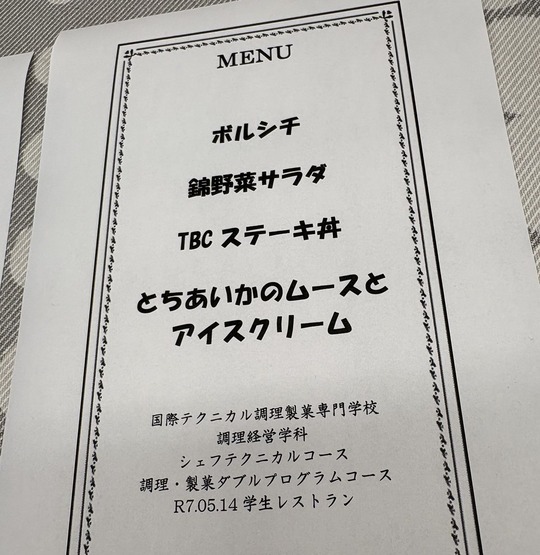 MENU
ボルシチ
錦野菜サラダ
TBC ステーキ丼
とちあいかのムースと
アイスクリーム
国際テクニカル調理製菓専門学校
調理経営学科
シェフテクニカルコース
調理・製菓ダブルプログラムコース
R7.05.14 学生レストラン